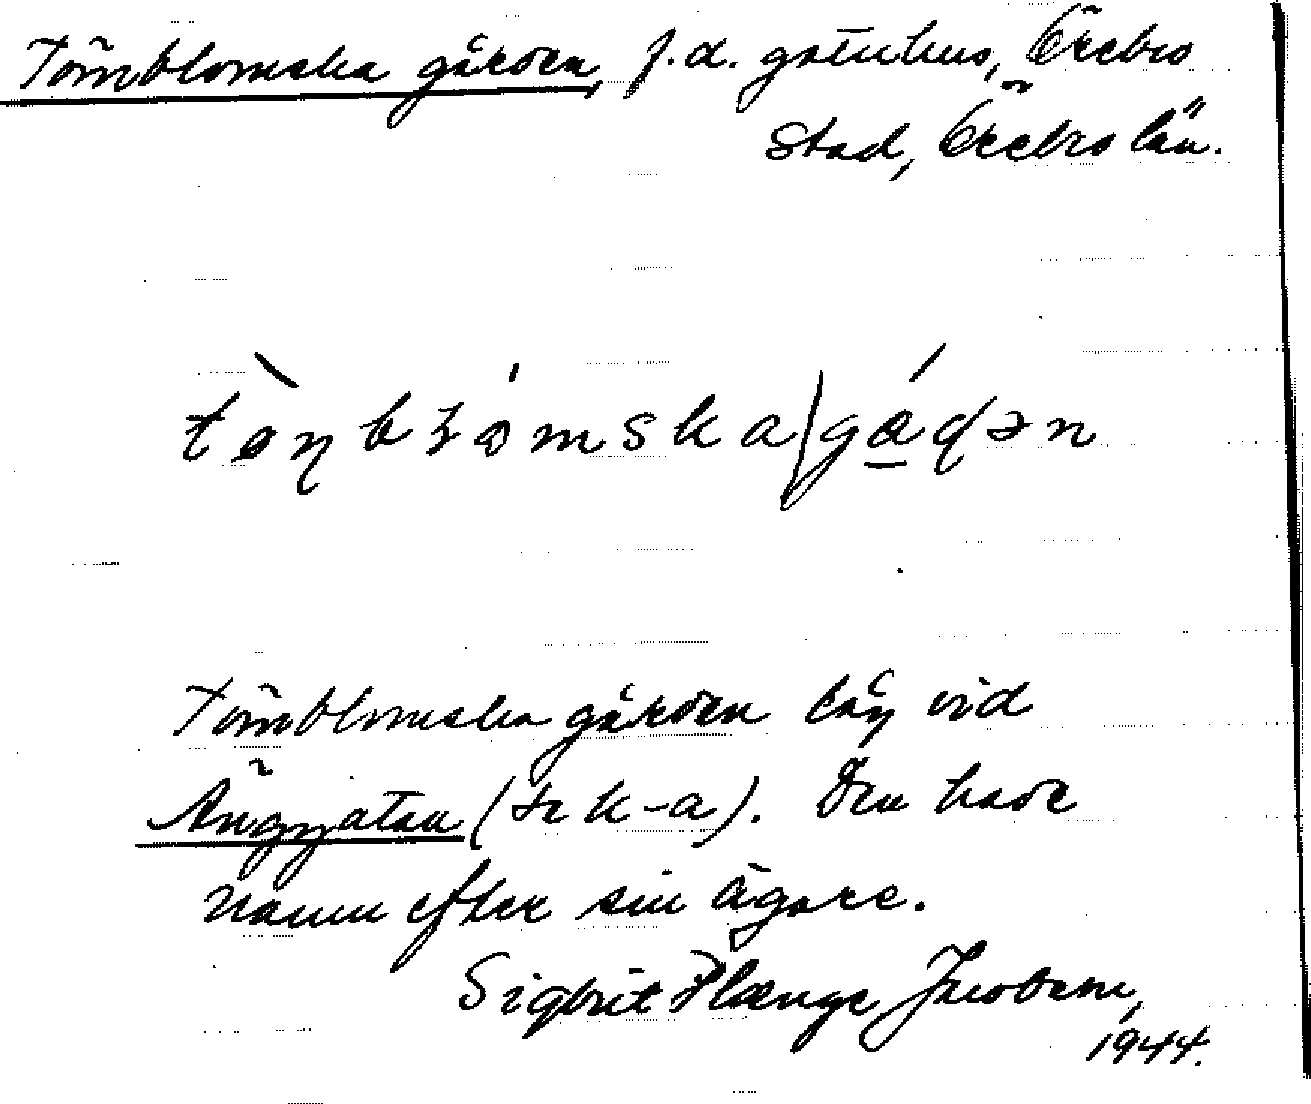 Törnblomska gården, f.d. gästhus, Örebro
stad, Örebro län.
tö̀ŋbɫómska/gáɖən
Törnblomska gården låg vid
Änggatan (se k-a). Den hade
namn efter sin ägare.
Sigbrit Plænge Jacobson,
1944.